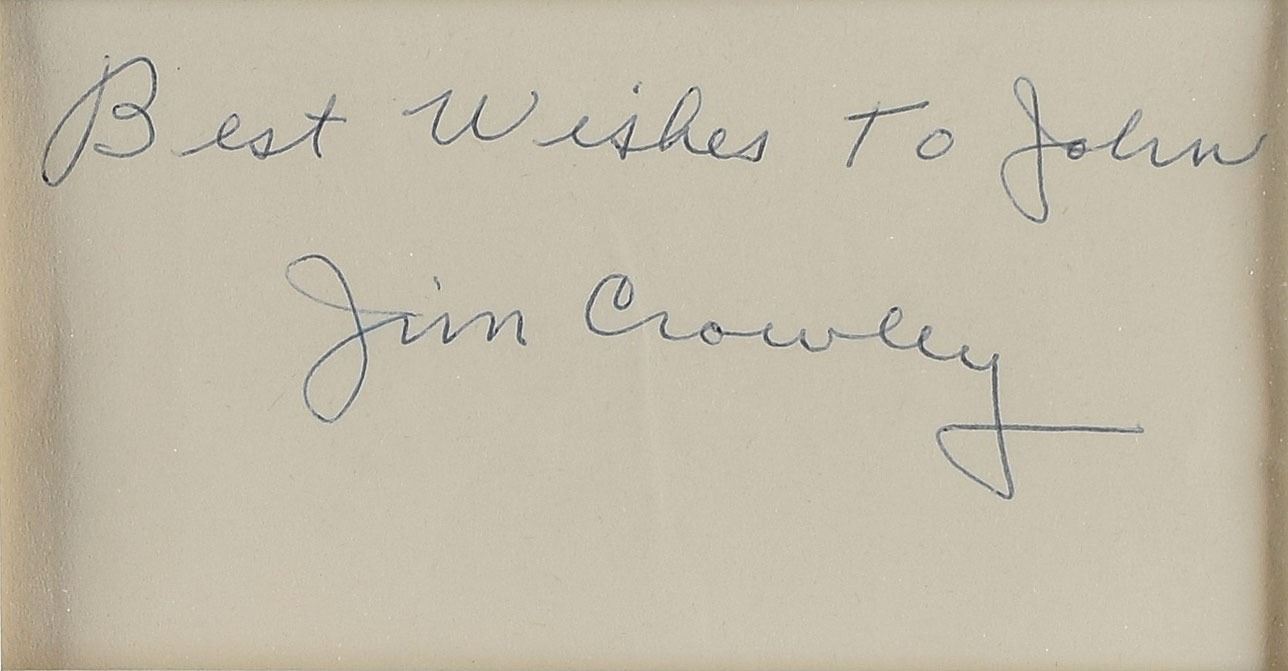 Best Wishes To John
Jim Crowley